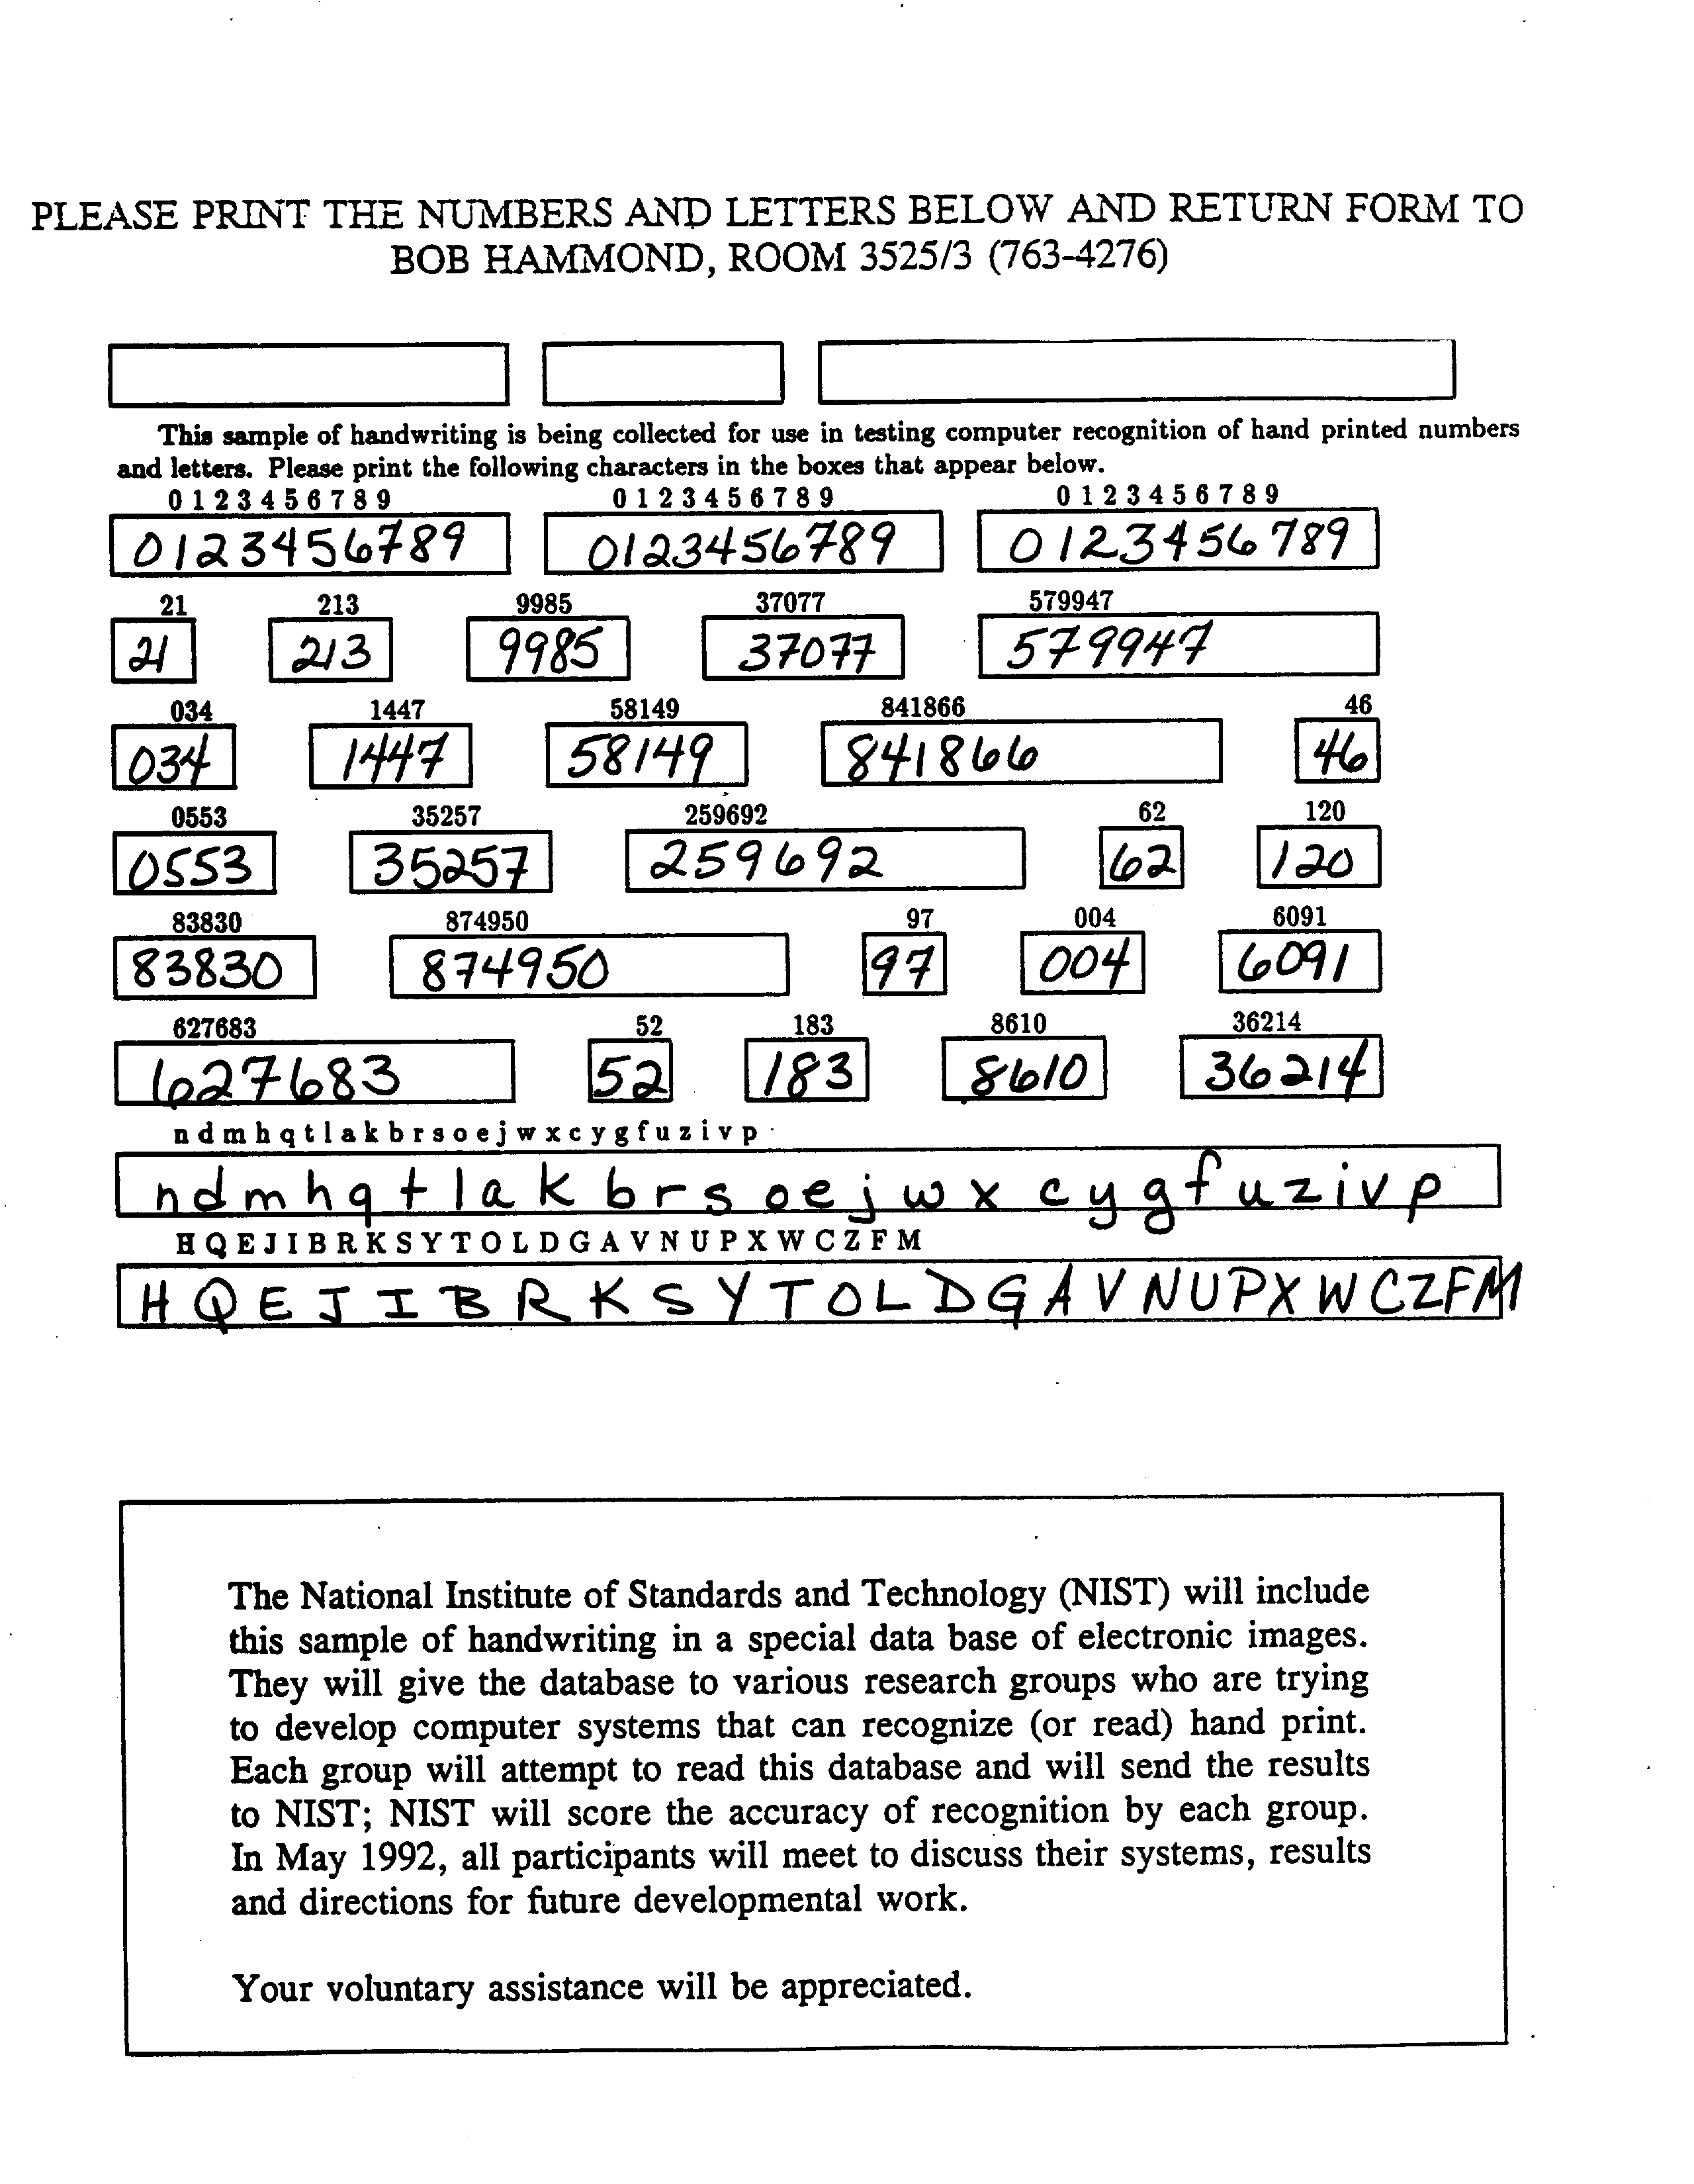 PLEASE PRINT THE NUMBERS AND LETTERS BELOW AND RETURN FORM TO
BOB HAMMOND, ROOM 3525/3 (763-4276)
This sample of handwriting is being collected for use in testing computer recognition of hand printed numbers
and letters. Please print the following characters in the boxes that appear below.
0 1 2 3 4 5 6 7 8 9 0 1 2 3 4 5 6 7 8 9 0 1 2 3 4 5 6 7 8 9
0123456789 0123456789 0123456789
21 213 9985 37077 579947
21 213 9985 37077 579947
034 1447 58149 841866 46
034 1447 58149 841866 46
0553 35257 259692 62 120
0553 35257 259692 62 120
83830 874950 97 004 6091
83830 874950 97 004 6091
627683 52 183 8610 36214
627683 52 183 8610 36214
n d m h q t l a k b r s o e j w x c y g f u z i v p
n d m h q t l a k b r s o e j w x c y g f u z i v p
H Q E J I B R K S Y T O L D G A V N U P X W C Z F M
H Q E J I B R K S Y T O L D G A V N U P X W C Z F M
The National Institute of Standards and Technology (NIST) will include
this sample of handwriting in a special data base of electronic images.
They will give the database to various research groups who are trying
to develop computer systems that can recognize (or read) hand print.
Each group will attempt to read this database and will send the results
to NIST; NIST will score the accuracy of recognition by each group.
In May 1992, all participants will meet to discuss their systems, results
and directions for future developmental work.
Your voluntary assistance will be appreciated.